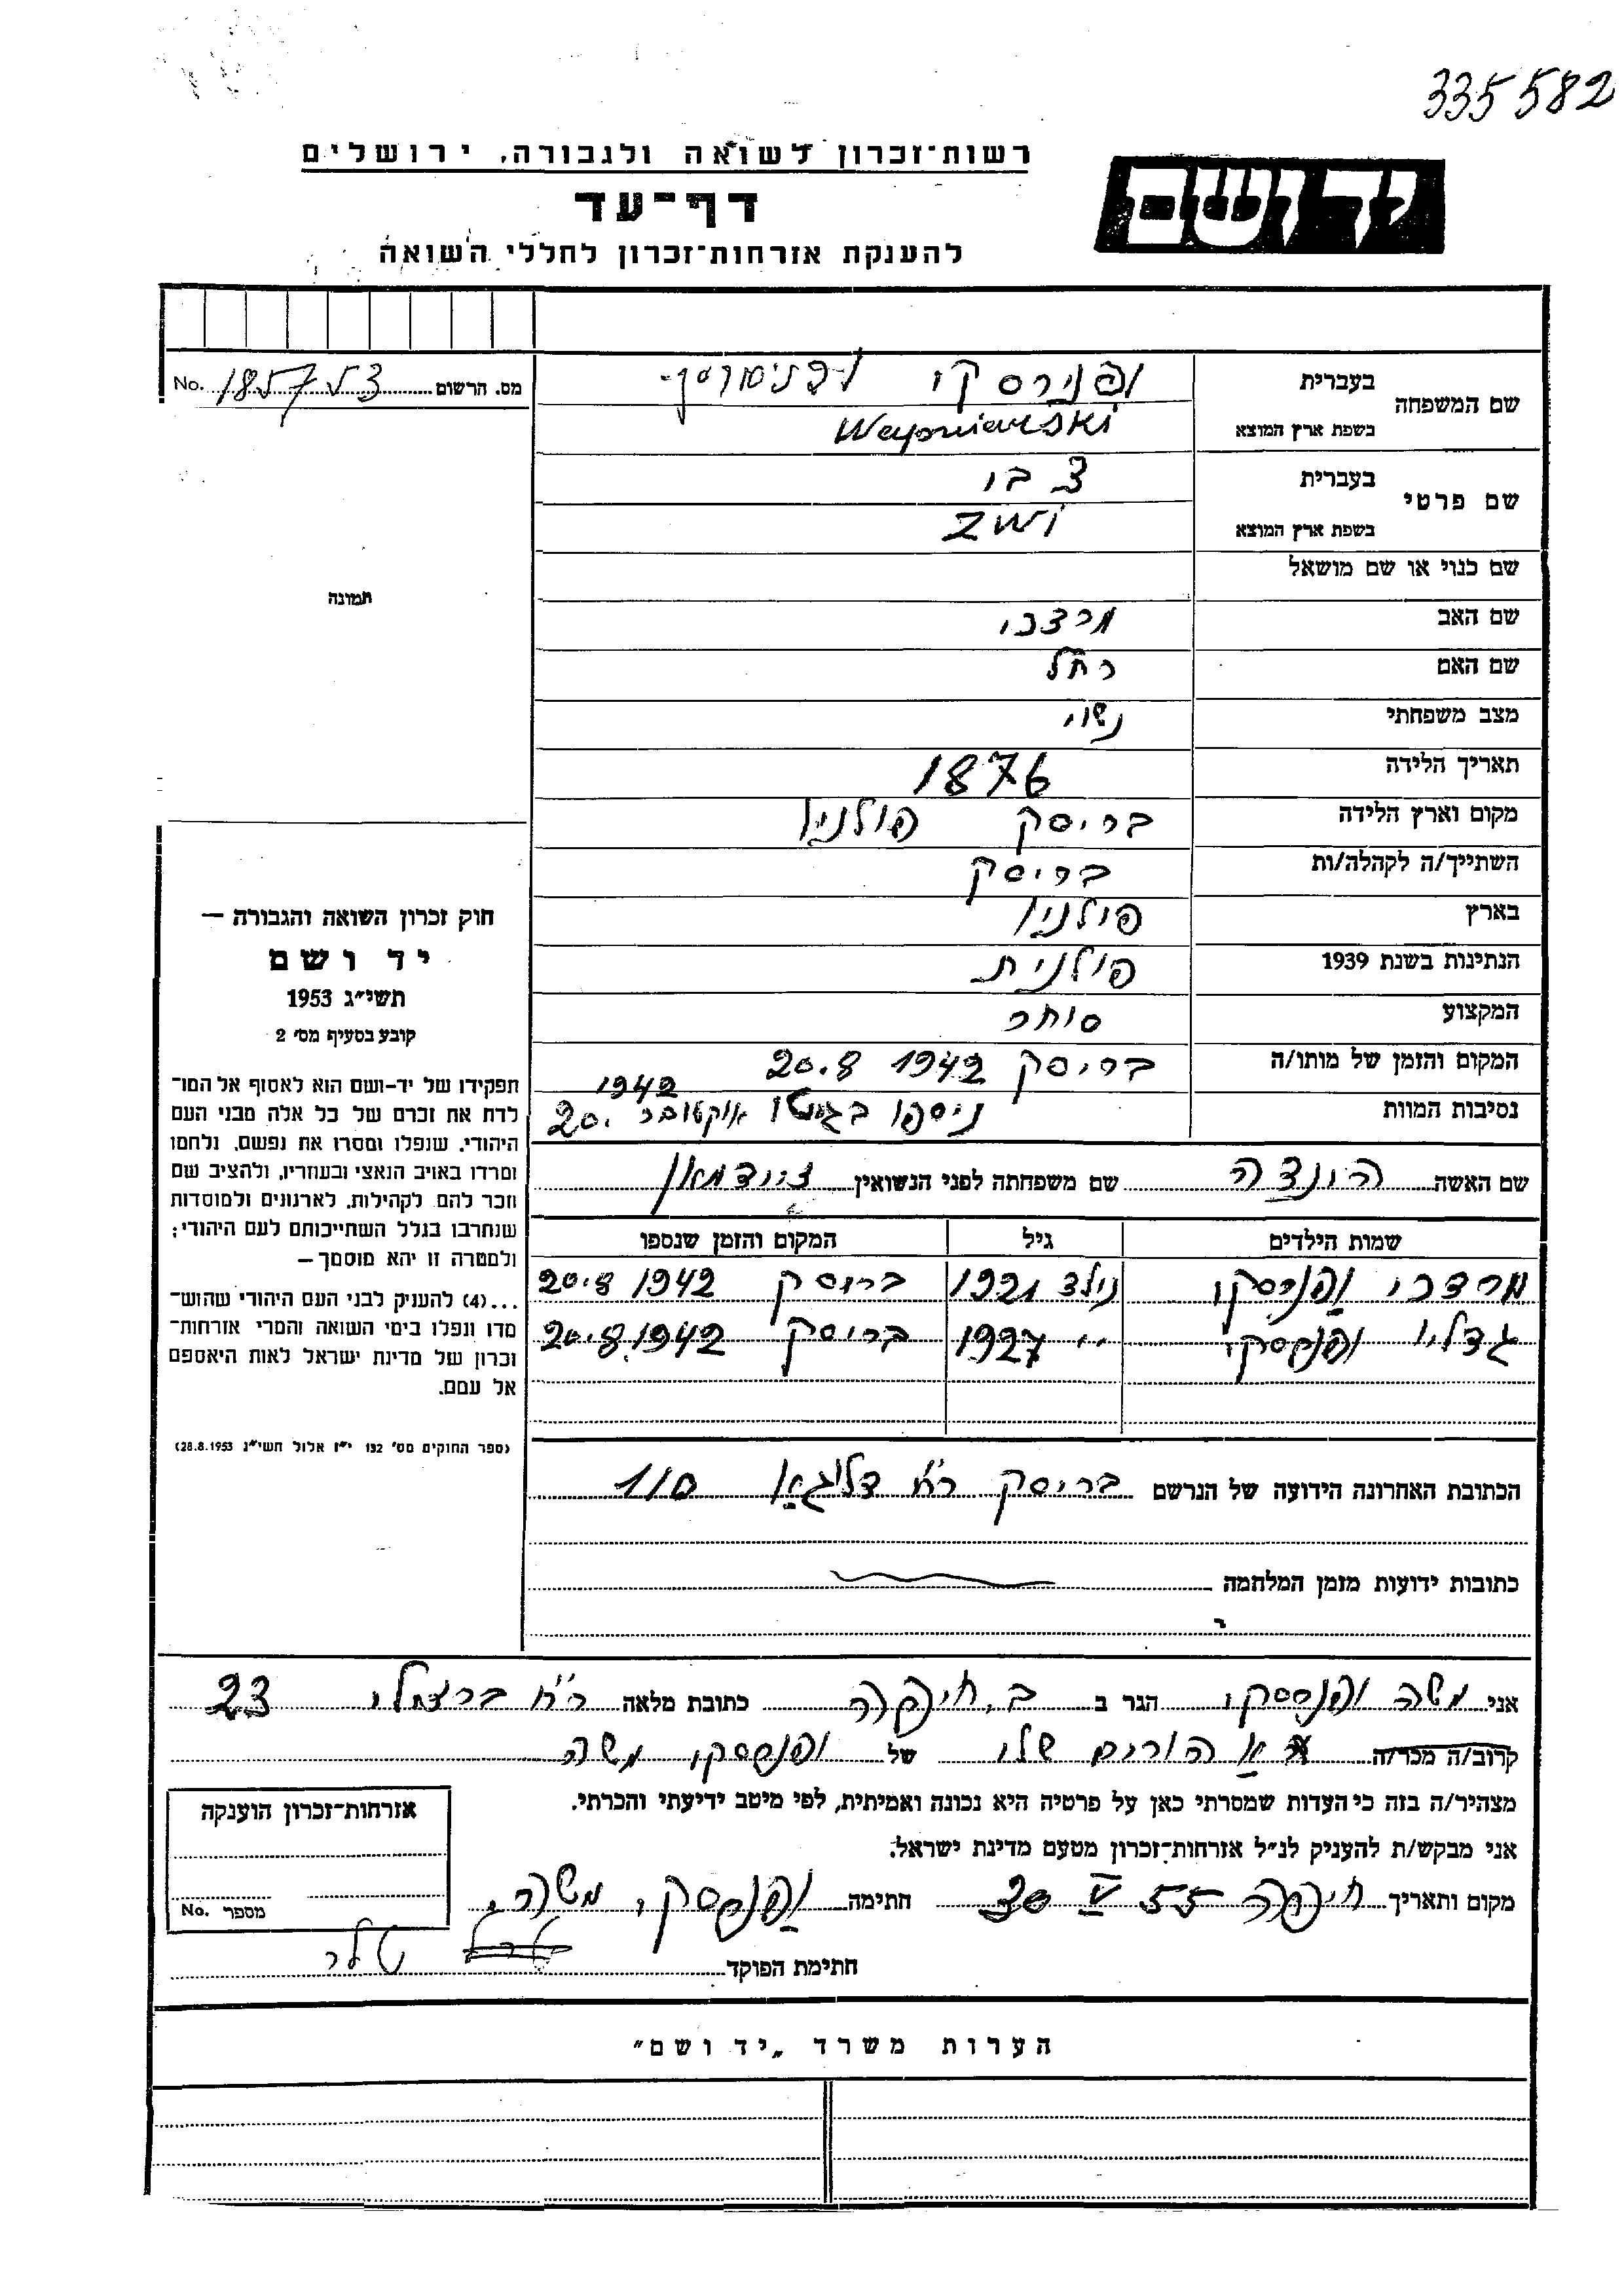 335582
רשות־זכרון לשואה ולגבורה, ירושלים
יד ושם
דף־עד
להענקת אזרחות־זכרון לחללי השואה
מס. הרשום No. 185753
שם המשפחה בעברית ופנירסקי
בשפת ארץ המוצא
שם פרטי בעברית צבי
בשפת ארץ המוצא Zwi
שם כנוי או שם מושאל
שם האב מרדכי
שם האם רחל
מצב משפחתי נשוי
תאריך הלידה 1876
מקום וארץ הלידה בריסק פולניו
השתייך/ה לקהלה/ות בריסק
בארץ פולניו
הנתינות בשנת 1939 פולנית
המקצוע סוחר
המקום והזמן של מותו/ה בריסק 1942 20.8
נסיבות המוות ניספו בגיטו אוקטובר 20. 1942
שם האשה הינדה שם משפחתה לפני הנשואין
שמות הילדים גיל המקום והזמן שנספו
מרדכי נולד 1921 בריסק 1942 20.8
גדליו " 1927 בריסק 20.8.1942
הכתובת האחרונה הידועה של הנרשם בריסק רח דלוגא 110
כתובות ידועות מזמן המלחמה
תמונה
חוק זכרון השואה והגבורה —
יד ושם
תשי״ג 1953
קובע בסעיף מס׳ 2
תפקידו של יד-ושם הוא לאסוף אל המו־
לדת את זכרם של כל אלה מבני העם
היהודי, שנפלו ומסרו את נפשם, נלחמו
ומרדו באויב הנאצי ובעוזריו, ולהציב שם
וזכר להם לקהילות, לארגונים ולמוסדות
שנחרבו בגלל השתייכותם לעם היהודי;
ולמטרה זו יהא מוסמך —
...(4) להעניק לבני העם היהודי שהוש־
מדו ונפלו בימי השואה והמרי אזרחות־
זכרון של מדינת ישראל לאות היאספם
אל עמם.
(ספר החוקים מס׳ 132 י״ז אלול תשי״ג 28.8.1953)
אני משה הגר ב ב. חיפה כתובת מלאה רח ברצלי 23
קרוב/ה מכר/ה הורים שלי של משה
מצהיר/ה בזה כי העדות שמסרתי כאן על פרטיה היא נכונה ואמיתית, לפי מיטב ידיעתי והכרתי.
אני מבקש/ת להעניק לנ״ל אזרחות־זכרון מטעם מדינת ישראל.
מקום ותאריך חיפה 30 V 55 חתימה משה
חתימת הפוקד
אזרחות־זכרון הוענקה
מספר No.
הערות משרד „יד ושם״